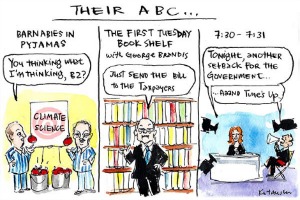 THEIR ABC...
BARNABIES IN
PYJAMAS
You thinking what
I'm thinking, B2?
CLIMATE
SCIENCE
THE FIRST TUESDAY
BOOK SHELF
with George Brandis
Just send the Bill
to the Taxpayers
7:30 - 7:31
Tonight, another
setback for the
Government...
...Aaand Time's Up.